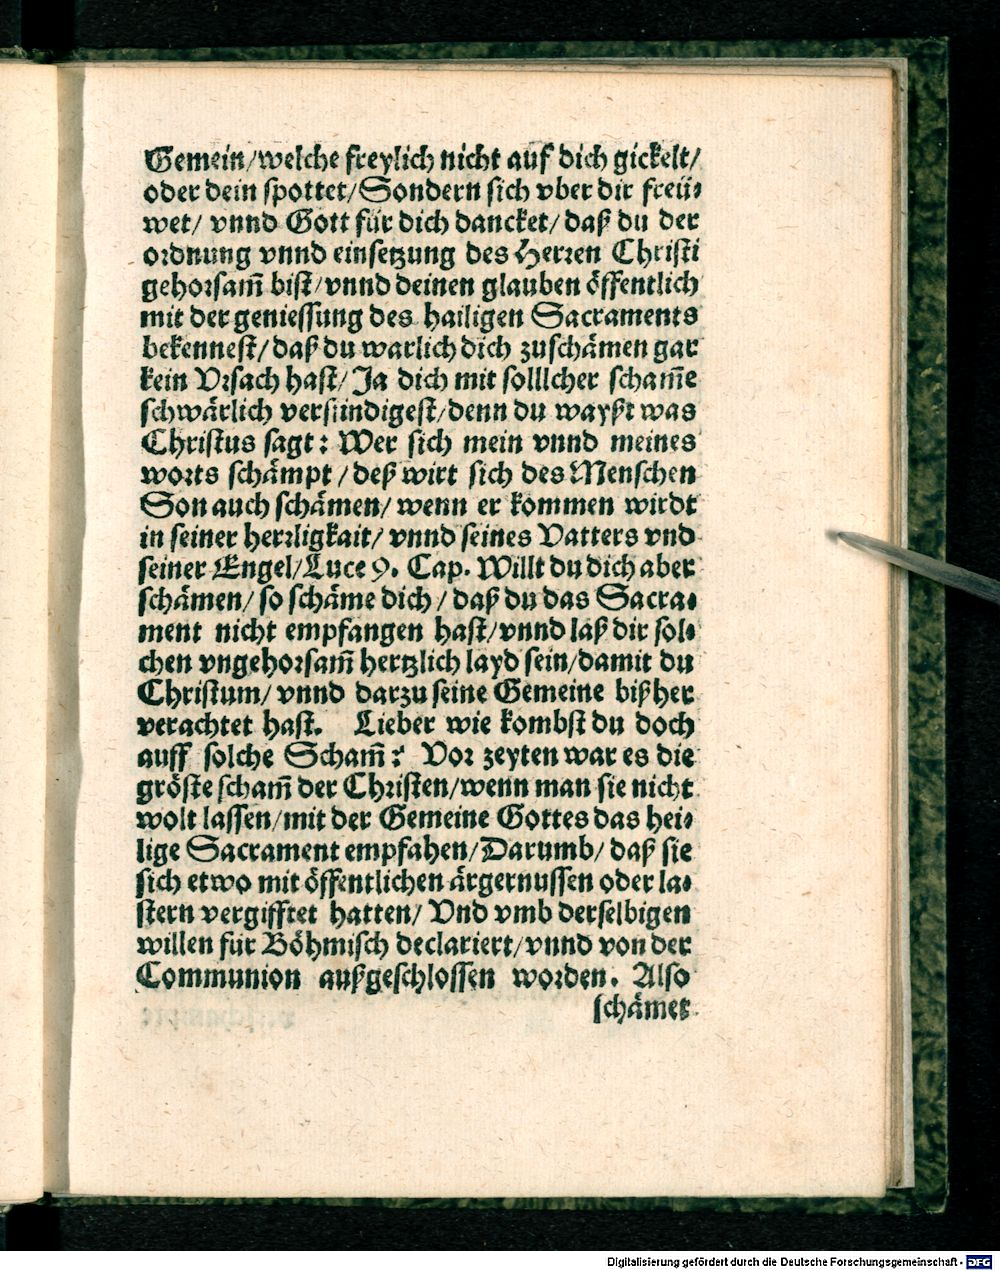 Gemein/welche freylich nicht auf dich gickelt/
oder dein spottet/Sondern sich vber dir freü⸗
wet/ vnnd Gott für dich dancket/ daß du der
ordnung vnnd einsetzung des Herren Christi
gehorsam̃ bist/vnnd deinen glauben öffentlich
mit der geniessung des hailigen Sacraments
bekennest/daß du warlich dich zuschämen gar
kein Vrsach hast/Ja dich mit solllcher scham̃e
schwärlich versündigest/denn du wayßt was
Christus sagt: Wer sich mein vnnd meines
worts schämpt/deß wirt sich des Menschen
Son auch schämen/wenn er kommen wirdt
in seiner herrligkait/ vnnd seines Vatters vnd
seiner Engel/Luce 9. Cap. Willt du dich aber
schämen/ so schäme dich/daß du das Sacra⸗
ment nicht empfangen hast/vnnd laß dir sol⸗
chen vngehorsam̃ hertzlich layd sein/damit du
Christum/ vnnd darzu seine Gemeine bißher
verachtet hast. Lieber wie kombst du doch
auff solche Scham̃? Vor zeyten war es die
gröste scham̃ der Christen/wenn man sie nicht
wolt lassen/mit der Gemeine Gottes das hei⸗
lige Sacrament empfahen/Darumb/ daß sie
sich etwo mit öffentlichen ärgernussen oder la⸗
stern vergifftet hatten/ Vnd vmb derselbigen
willen für Böhmisch declariert/vnnd von der
Communion außgeschlossen worden. Also
schämet
Digitalisierung gefördert durch die Deutsche Forschungsgemeinschaft - DFG